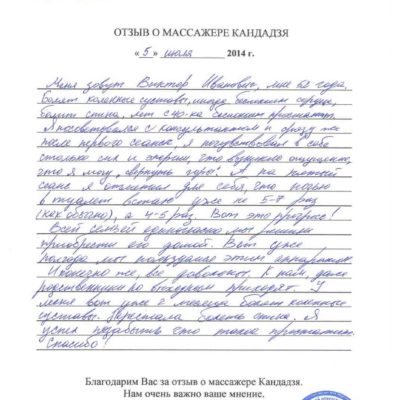 ОТЗЫВ О МАССАЖЕРЕ КАНДАДЗЯ
« 5 » июля 2014 г.
Меня зовут Виктор Иванович, мне 62 года,
болят коленные суставы, ишемия сердца,
болит спина, лет с 40-ка простатит.
Я посоветовался с консультантом и сразу же
после первого сеанса, я почувствовал в себе
столько сил и энергии, что возникло ощущение,
что я могу „свернуть горы". А на пятый
сеанс я отметил для себя, что ночью
в туалет встаю уже не 5-7 раз
(как обычно), а 4-5 раз. Вот это прогресс!
Всей семьёй единогласно мы решили
приобрести его домой. Вот уже
полгода мы пользуемся этим аппаратом
И конечно же, все довольны. К нам, даже
родственники по выходным приходят. У
меня вот уже 2 месяца болят коленные
суставы. Перестала болеть спина. Я
успел позабыть что такое простатит.
Спасибо!
Благодарим Вас за отзыв о массажере Кандадзя.
Нам очень важно ваше мнение.